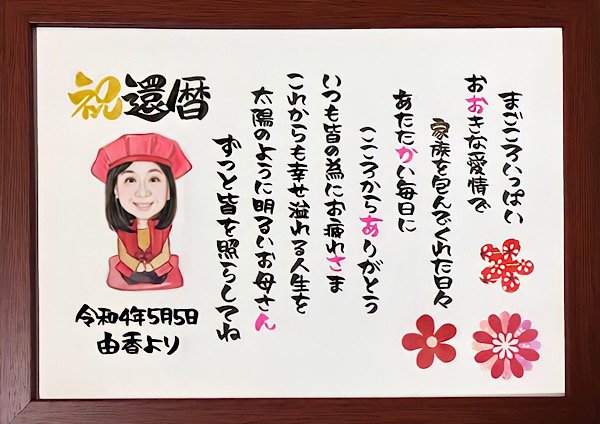 まごころいっぱい
おおきな愛情で
家族を包んでくれた日々
あたたかい毎日に
こころからありがとう
いつも皆の為にお疲れさま
これからも幸せ溢れる人生を
太陽のように明るいお母さん
ずっと皆を照らしてね
祝還暦
令和4年5月5日
由香より